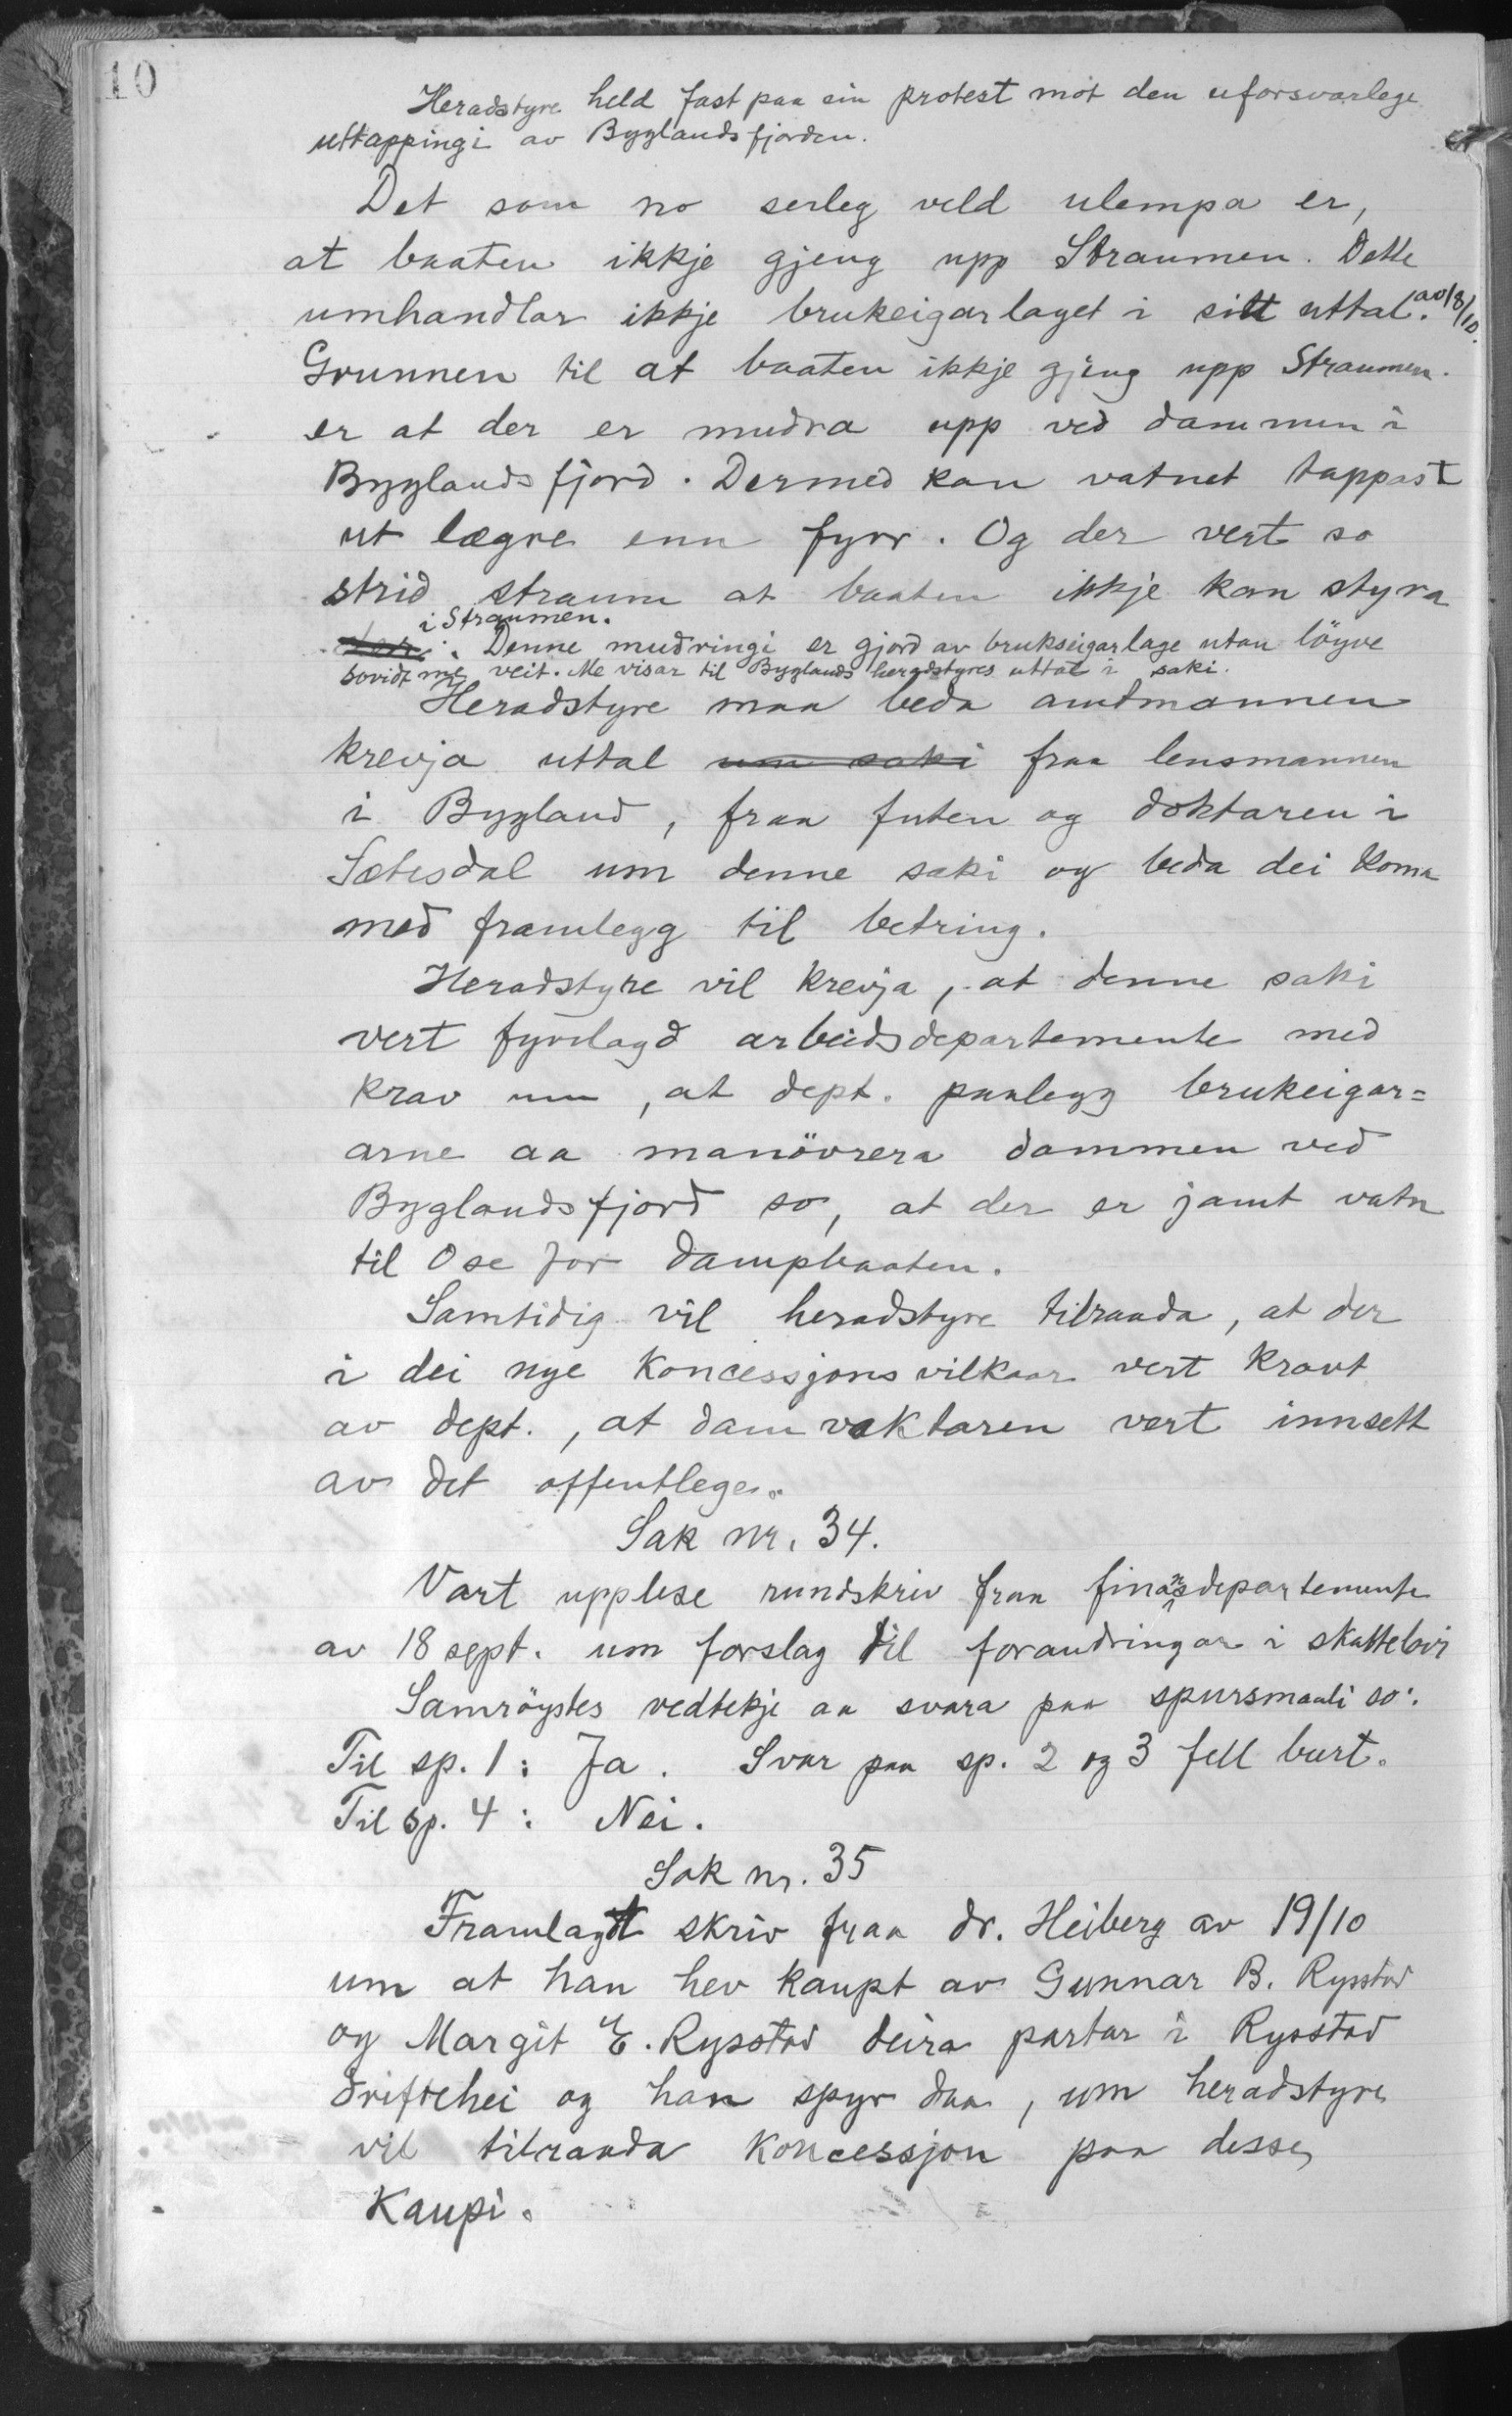 10
Heradstyre held fast paa sin protest mot den uforsvarlege
uttappingi av Byglandsfjorden.
Det som no serleg veld ulempa er,
at baaten ikkje gjeng upp Straumen. Dette
umhandlar ikkje brukeigarlaget i sitt uttal. av 8/10.
Grunnen til at baaten ikkje gjeng upp Straumen.
er at der er mudra upp ved dammen i
Byglandsfjord. Dermed kan vatnet tappast
ut lægre enn fyrr. Og der vert so
strid straum at baaten ikkje kan styra
i Straumen.
Denne mudringi er gjord av brukseigarlage utan löyve
sovidt me veit. Me visar til Byglands heradstyres uttal i saki.
Heradstyre maa beda amtmannen
krevja uttal um saki fraa lensmannen
i Bygland, fraa futen og doktaren i
Sætesdal um denne saki og beda dei koma
med framlegg til betring.
Heradstyre vil krevja, at denne saki
vert fyrelagd arbeidsdepartemente med
krav um, at dept. paalegg brukeigar=
arne aa manövrera dammen ved
Byglandsfjord so, at der er jamt vatn
til Ose for dampbaaten.
Samtidig vil heradstyre tilraada, at der
i dei nye koncessjonsvilkaar vert kravt
av dept., at damvaktaren vert innsett
av det offentlege.
Sak nr. 34.
Vart upplese rundskriv fraa finansdepartemente
av 18 sept. um forslag til forandringar i skattelovi
Samröystes vedtekje aa svara paa spursmaali so:
Til sp. 1: Ja. Svar paa sp. 2 og 3 fell burt.
Til sp. 4: Nei.
Sak nr. 35
Framlagt skriv fraa dr. Heiberg av 19/10
um at han hev kaupt av Gunnar B. Rysstad
og Margit E. Rysstad deira partar i Rysstad
driftehei og han spyr daa, um heradstyre
vil tilraada koncessjon paa desse
kaupi.